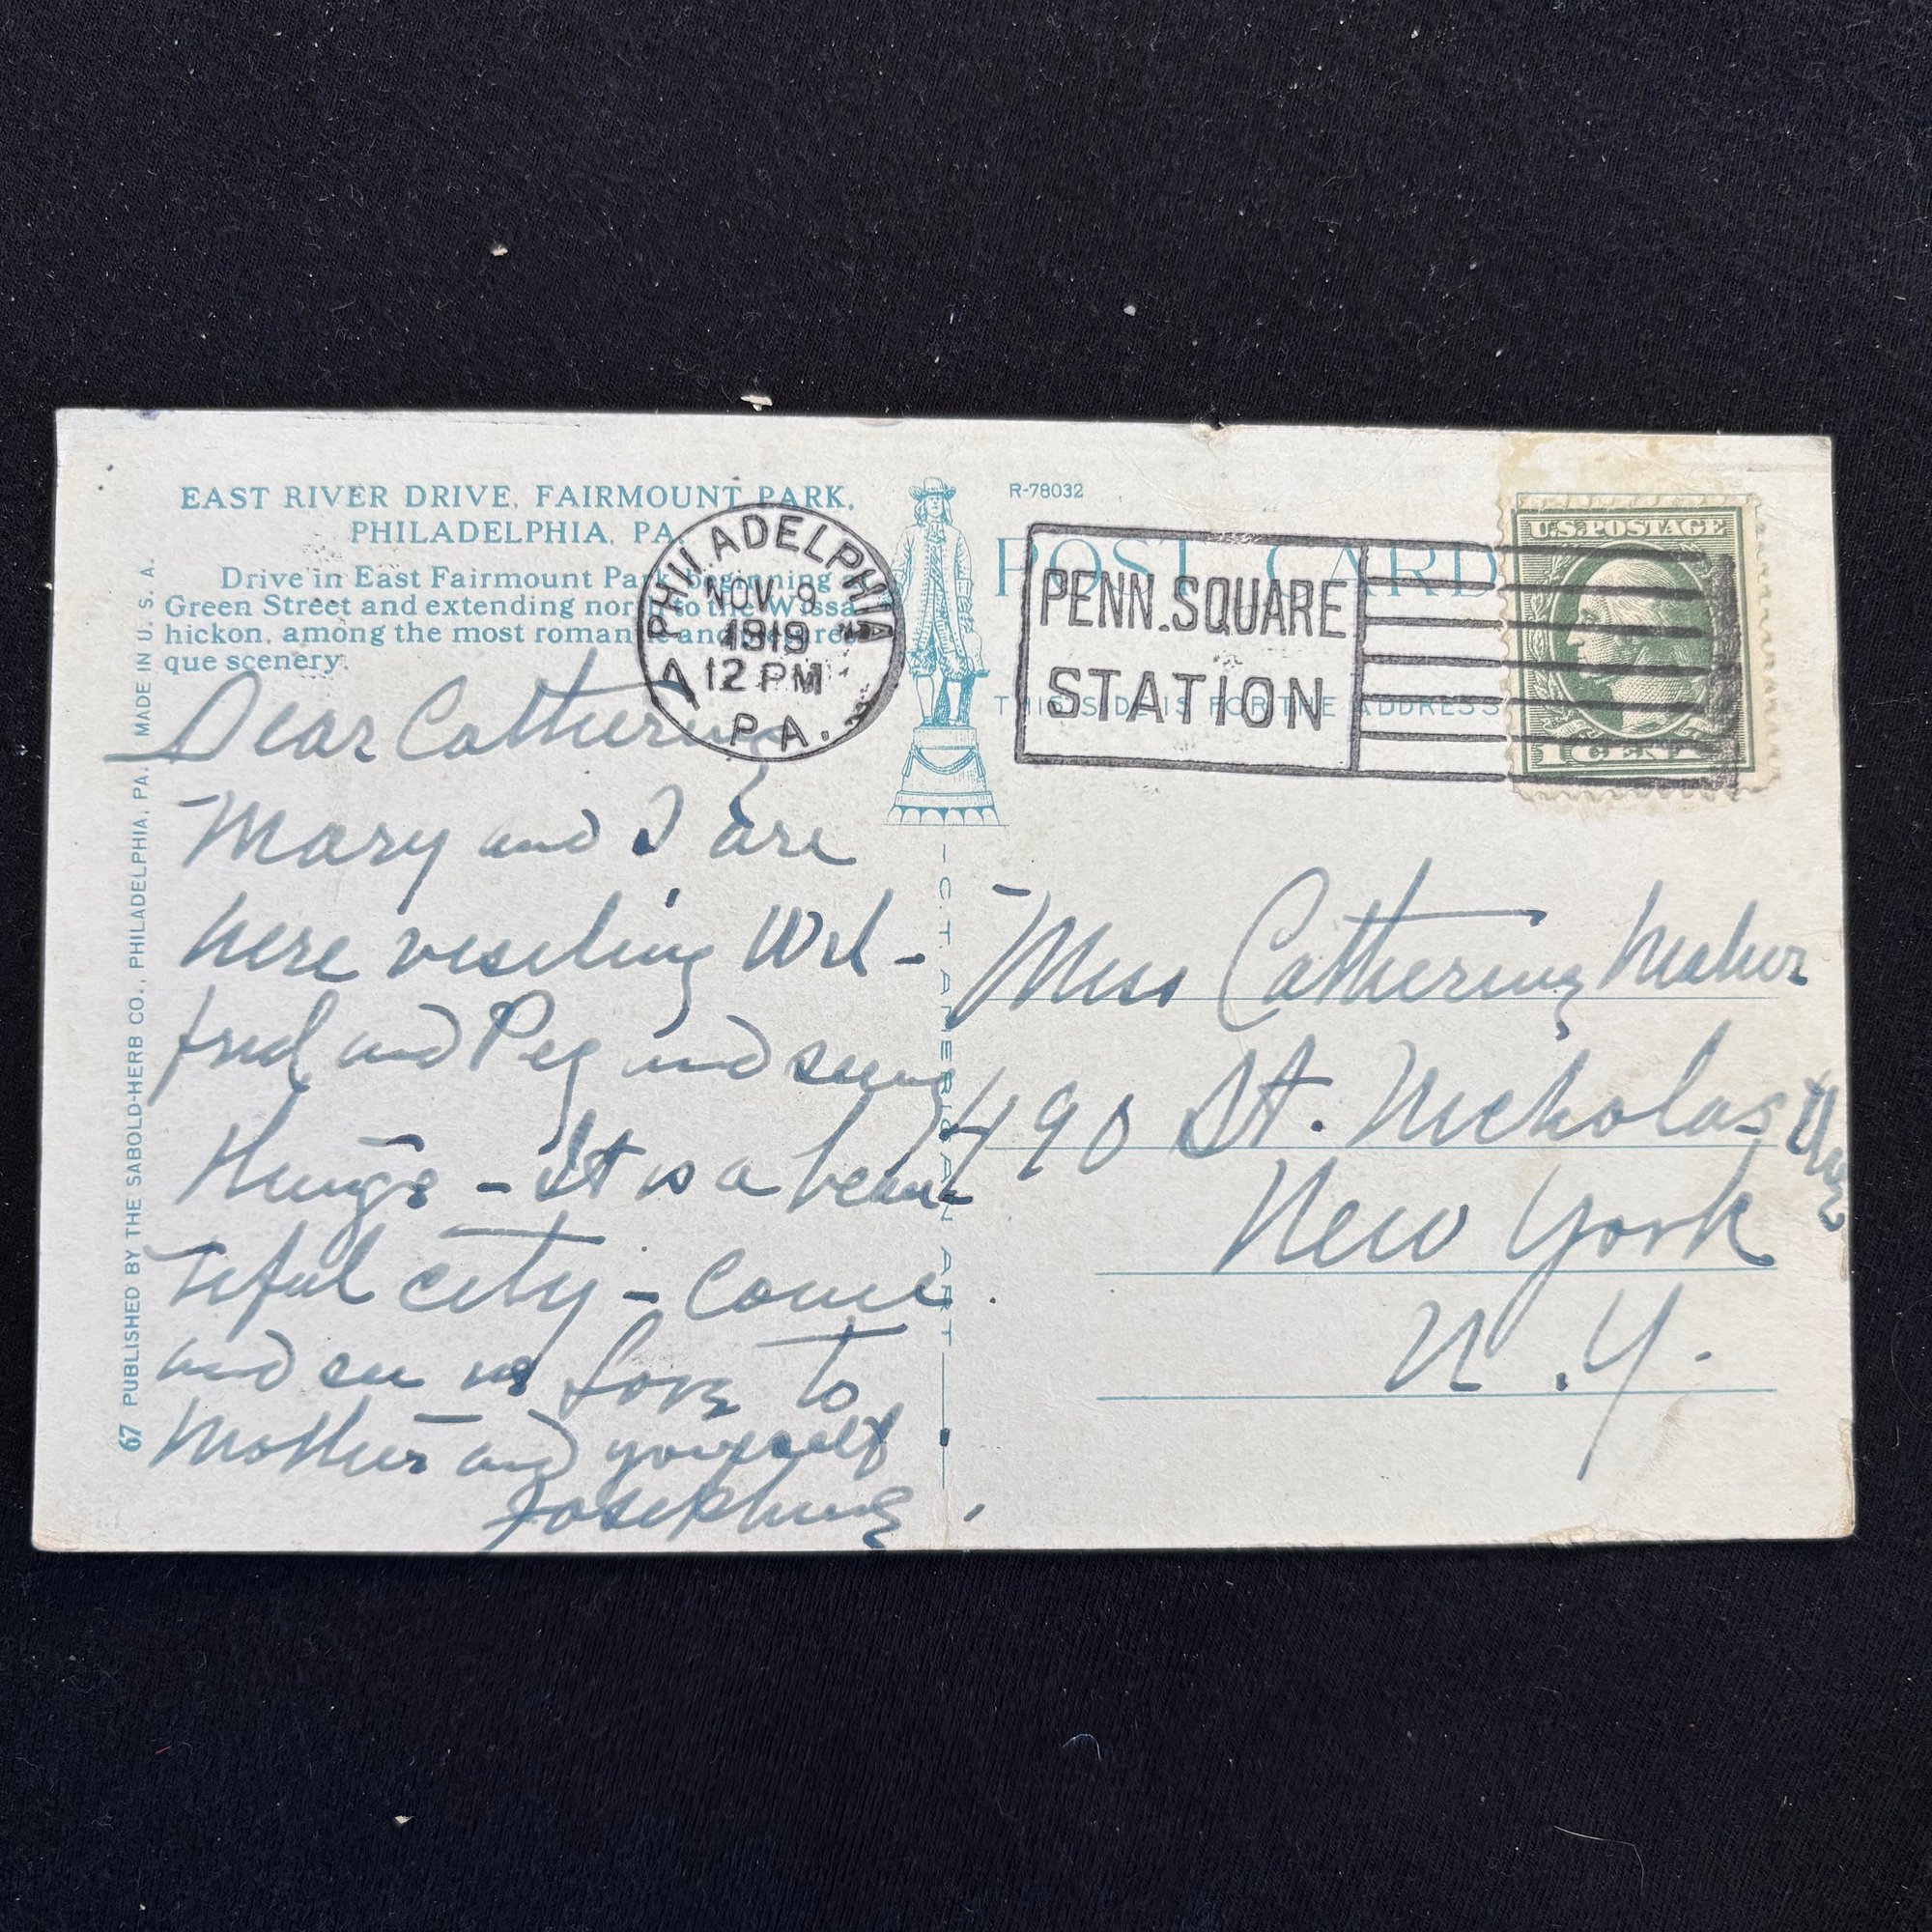 EAST RIVER DRIVE, FAIRMOUNT PARK,
PHILADELPHIA, PA.
Drive in East Fairmount Park beginning
Green Street and extending north to the Wissa
hickon, among the most romantic and
que scenery.
Dear Catherine
Mary and I are
here visiting Wil-
fred and Peg and seeing
things - It is a beau
tiful city - Come
and see us Love to
Mother and yourself
Josephine
67 PUBLISHED BY THE SABOLD-HERB CO., PHILADELPHIA, PA. MADE IN U. S. A.
PHILADELPHIA
NOV 9
1919
12 PM
A
PA.
R-78032
POST CARD
PENN. SQUARE
STATION
THIS SIDE IS FOR THE ADDRESS
U.S. POSTAGE
1 CENT
C. T. AMERICAN ART
Miss Catherine Maher
490 St. Nicholas Ave
New York
N. Y.